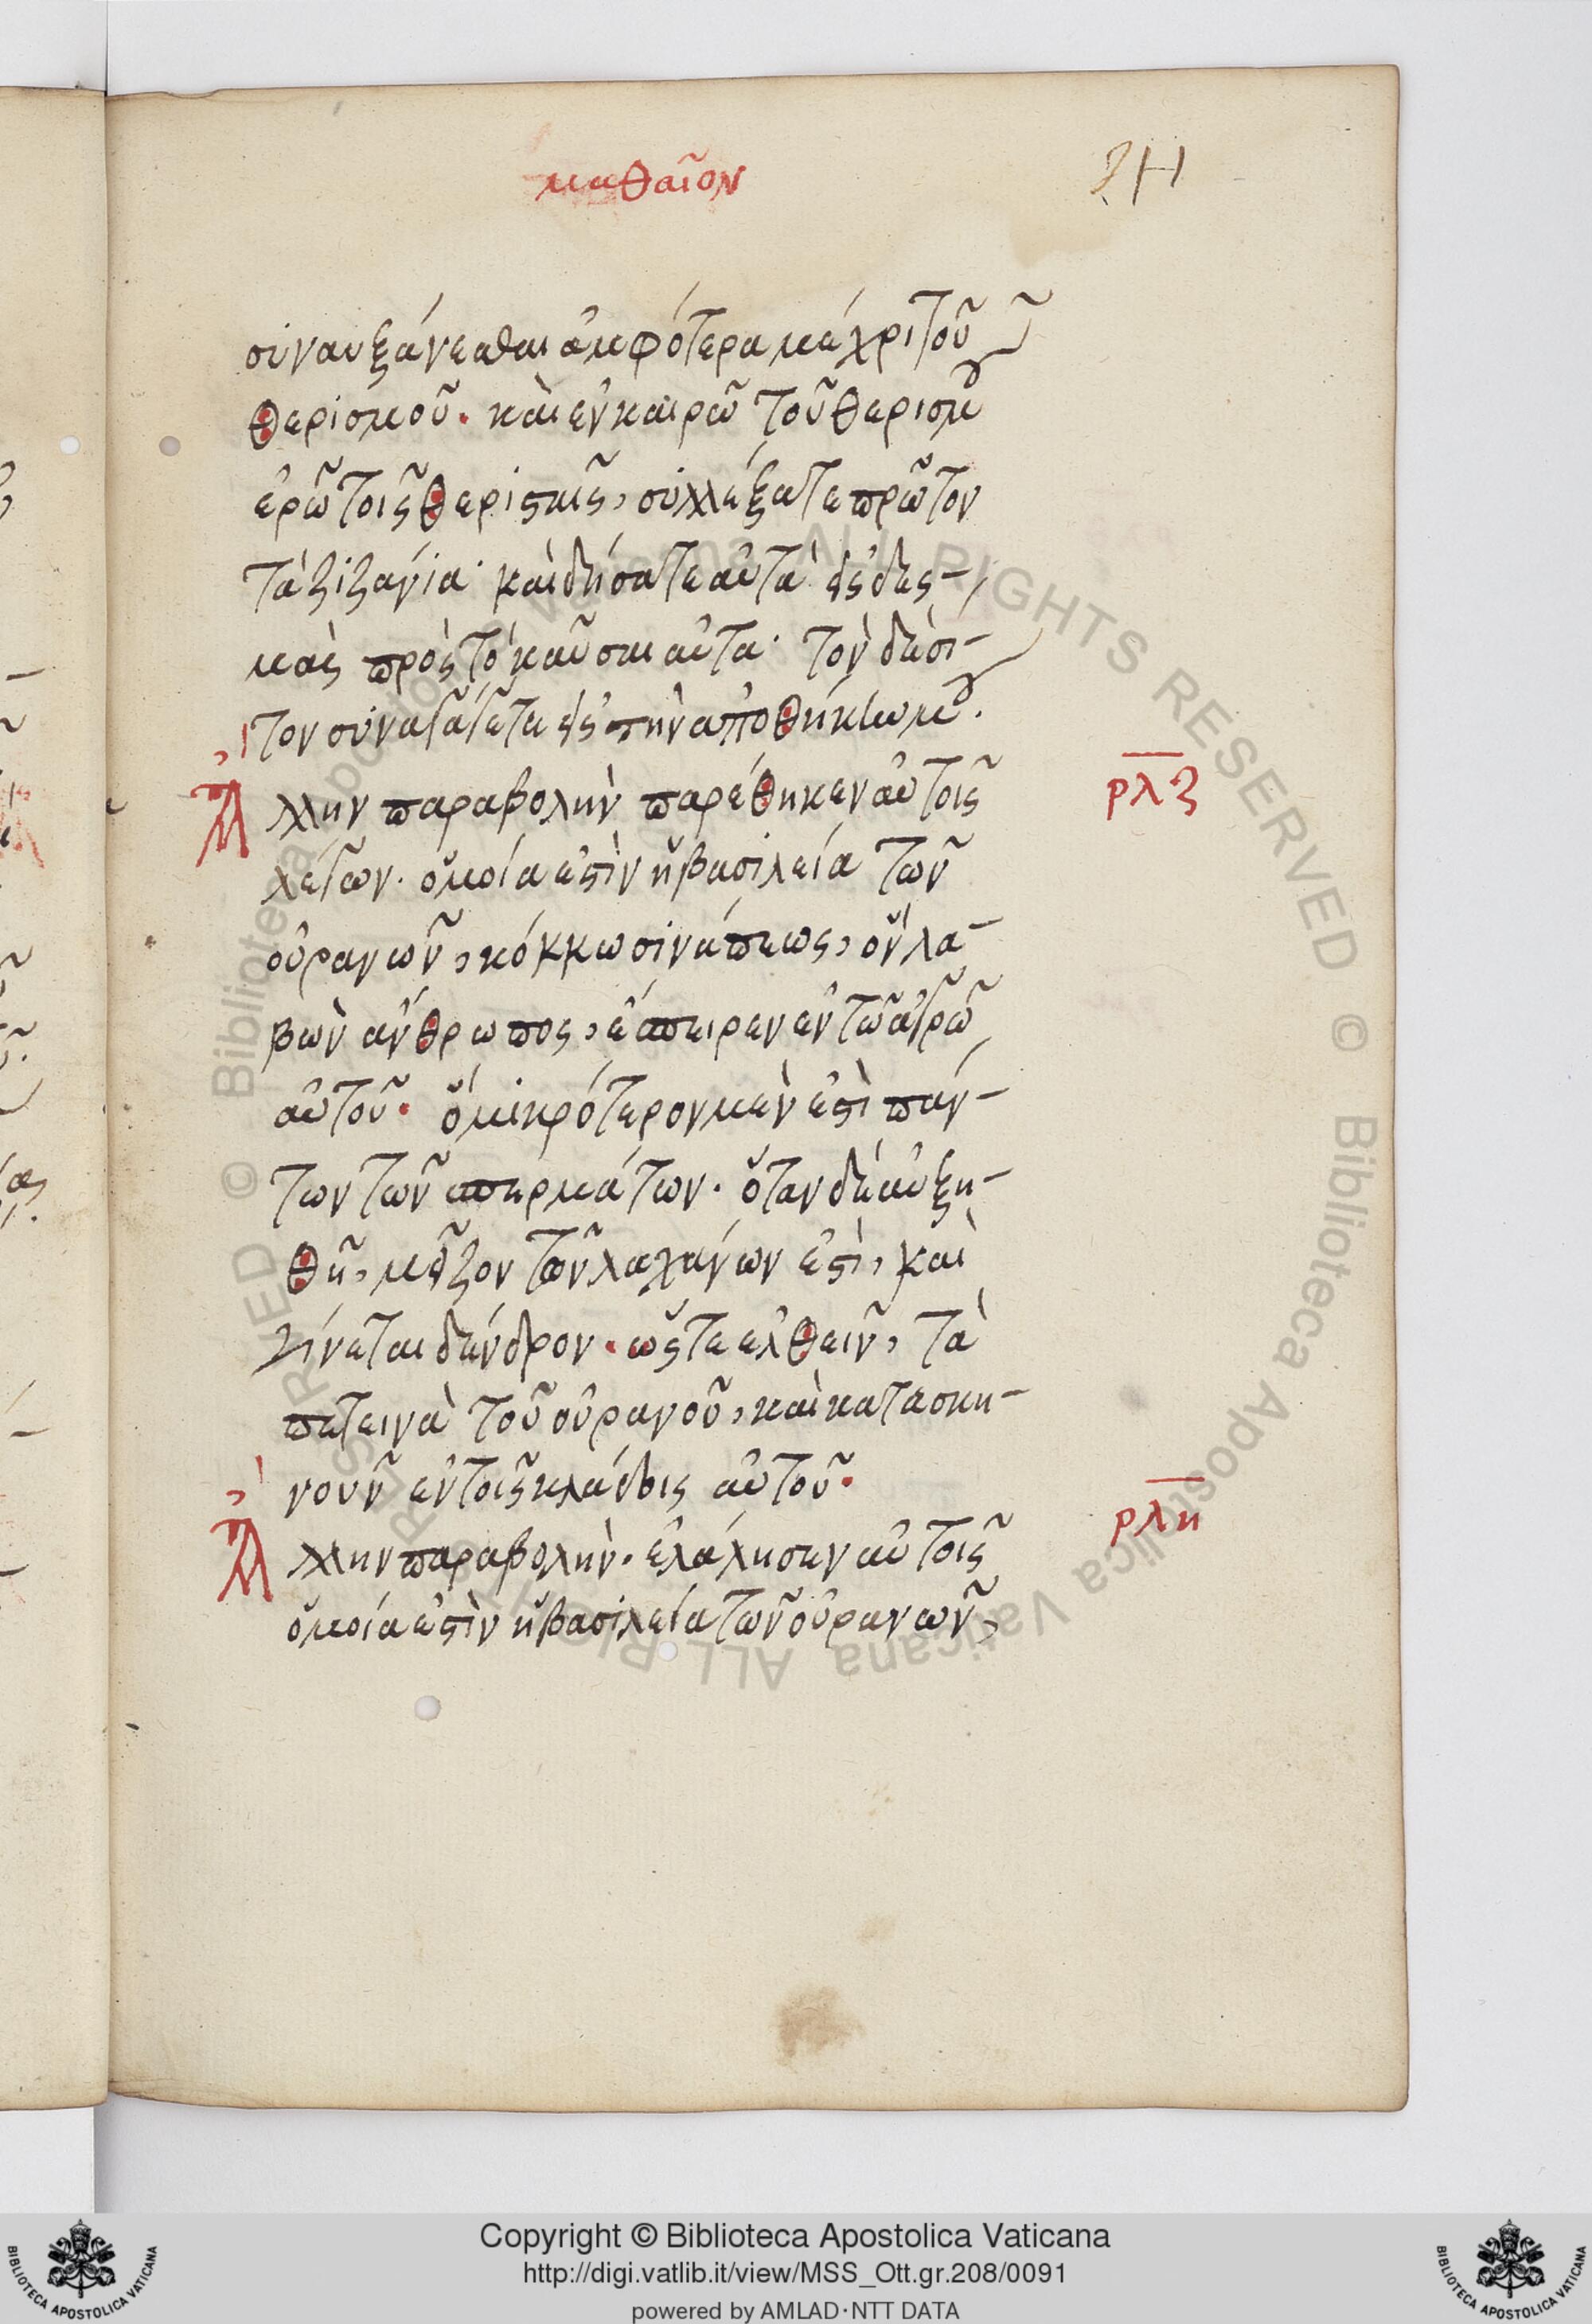 μαθαῖον
συναυξάνεσθαι ἀμφότερα μέχρι τοῦ
θερισμοῦ. καὶ ἐν καιρῶ τοῦ θερισμοῦ
ἐρῶ τοῖς θερισταῖς, συλλέξατε πρῶτον
τὰ ζιζάνια· καὶ δήσατε αὐτὰ εἰς δεσ-
μὰς πρὸς τὸ καῦσαι αὐτα· τὸν δὲ σί-
τον συναγάγετε εἰς τὴν ἀποθήκην μου.
Ἄλλην παραβολὴν παρέθηκεν αὐτοῖς
ρλζ
λέγων. ὁμοία ἐστὶν ἡ βασιλεία τῶν
οὐρανῶν, κόκκω σινάπεως, ὃν λα-
βὼν ἄνθρωπος, ἔσπειρεν ἐν τῶ ἀγρῶ
αὐτοῦ. ὃ μικρότερον μὲν ἐστὶ πάν-
των τῶν σπερμάτων. ὅταν δὲ αὐξη-
θῆ, μεῖζον τῶν λαχάνων ἐστὶ, καὶ
γίνεται δένδρον. ὥστε ἐλθεῖν, τὰ
πετεινὰ τοῦ οὐρανοῦ, καὶ κατασκη-
νοῦν ἐν τοῖς κλάδοις αὐτοῦ.
Ἄλλην παραβολὴν. ἐλάλησεν αὐτοῖς
ρλη
ὁμοία ἐστὶν ἡ βασιλεία τῶν οὐρανῶν,
Copyright © Biblioteca Apostolica Vaticana
http://digi.vatlib.it/view/MSS_Ott.gr.208/0091
powered by AMLAD·NTT DATA